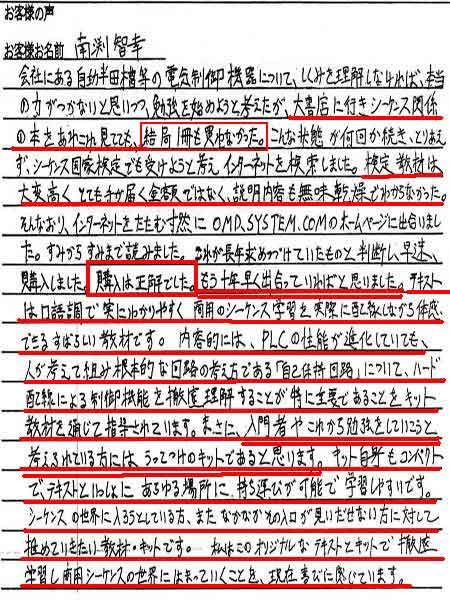 お客様の声
お客様お名前 南渕智幸
会社にある自動半田槽等の電気制御機器について、しくみを理解しなければ、本当
の力がつかないと思いつつ、勉強を始めようと考えたが、大書店に行きシーケンス関係
の本をあれこれ見ても、結局1冊も買わなかった。こんな状態が何回か続き、とりあえ
ず、シーケンス国家検定でも受けようと考えインターネットを検索しました。検定教材は
大変高くとても手が届く金額ではなく、説明内容も無味乾燥でわからなかった。
そんなおり、インターネットをたたむ寸前にOMD.SYSTEM.COMのホームページに出合いまし
た。すみからすみまで読みました。これが長年求めつづけていたものと、判断し早速、
購入しました。購入は正解でした。もう十年早く出合っていればと思いました。テキスト
は口語調で実にわかりやすく 商用のシーケンス学習を実際に配線しながら体感
できるすばらしい教材です。内容的には、PLCの性能が進化していても、
人が考えて組み根本的な回路の考え方である「自己保持回路」について、ハード
配線による制御機能を徹底理解することが特に重要であることをキット
教材を通じて指導されています。まさに、入門者やこれから勉強をしていこうと
考えられている方にはうってつけのキットであると思います。キット自身もコンパクト
でテキストといっしょにあらゆる場所に持ち運びが可能で学習しやすいです。
シーケンスの世界に入ろうとしている方、またなかなかその入口が見いだせない方に対して
推めていきたい教材・キットです。私はこのオリジナルなテキストとキットで徹底
学習し商用シーケンスの世界にはまっていくことを、現在喜びに感じています。